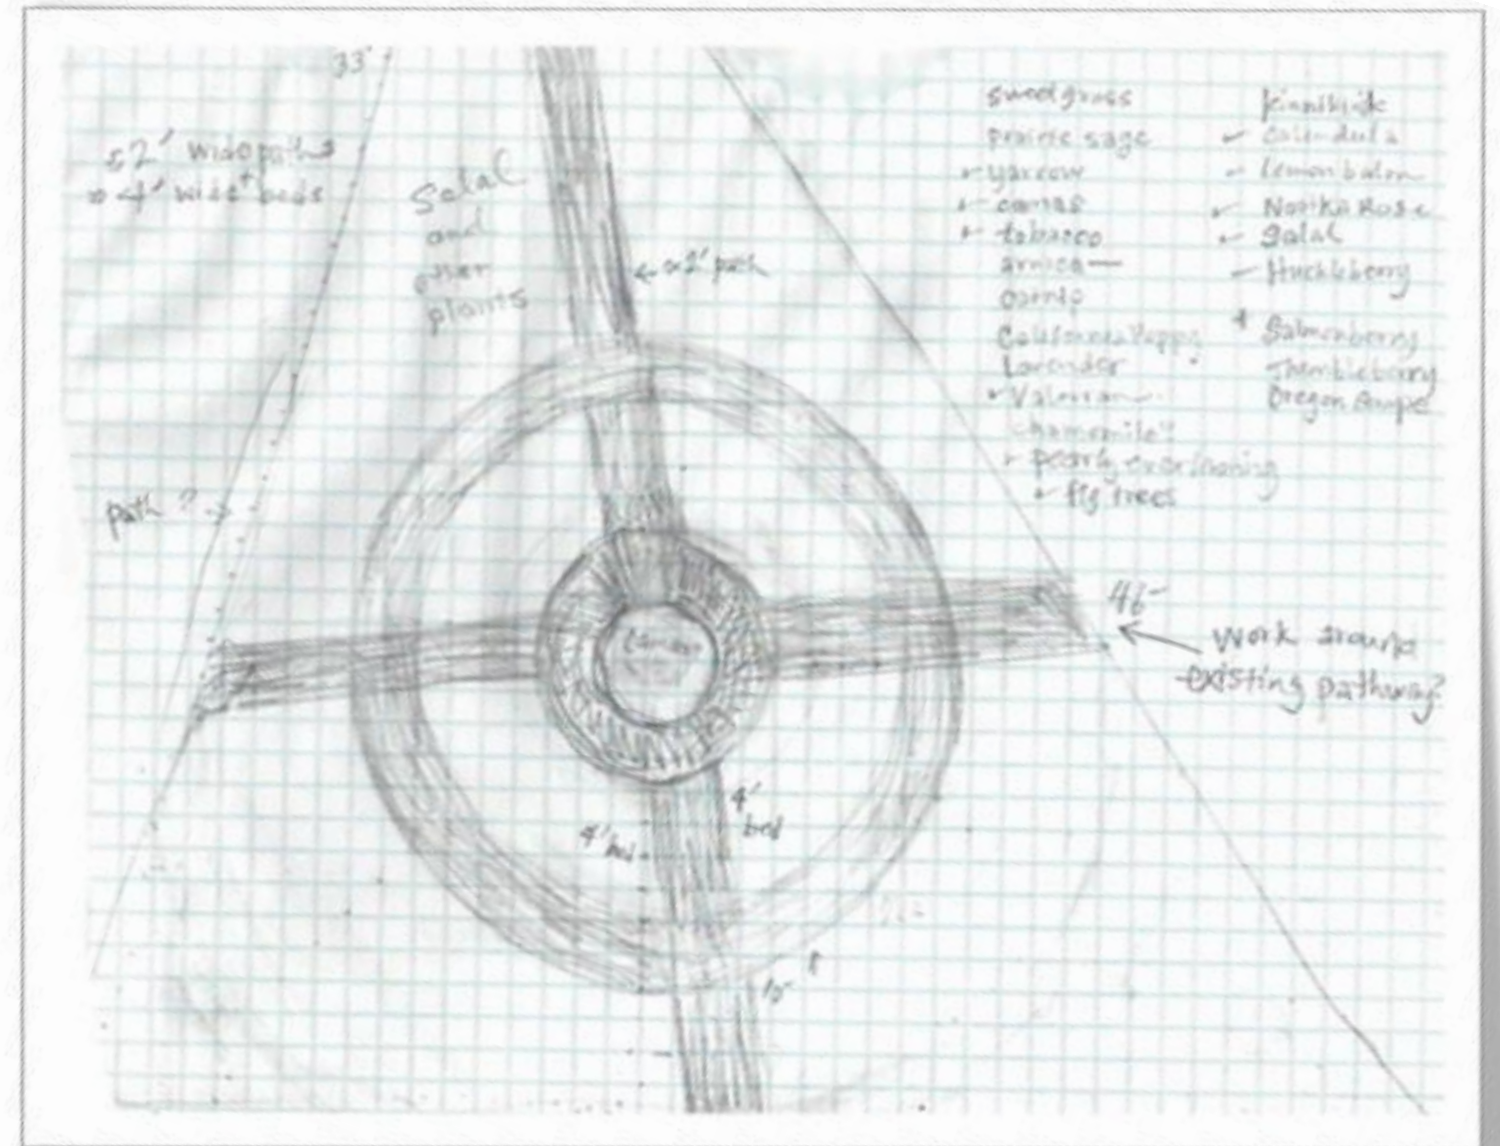 33'
2' wide paths
4' wide beds
Salal
and
other
plants
2' path
path ?
sweetgrass
prairie sage
yarrow
camas
tobacco
arnica
catnip
California Poppy
Lavender
Valerian
chamomile
pearly everlasting
fig trees
kinnikinick
calendula
Lemon balm
Nootka Rose
Salal
Huckleberry
Salmonberry
Thimbleberry
Oregon Grape
46'
work around
existing pathway?
4'
bed
4' bed